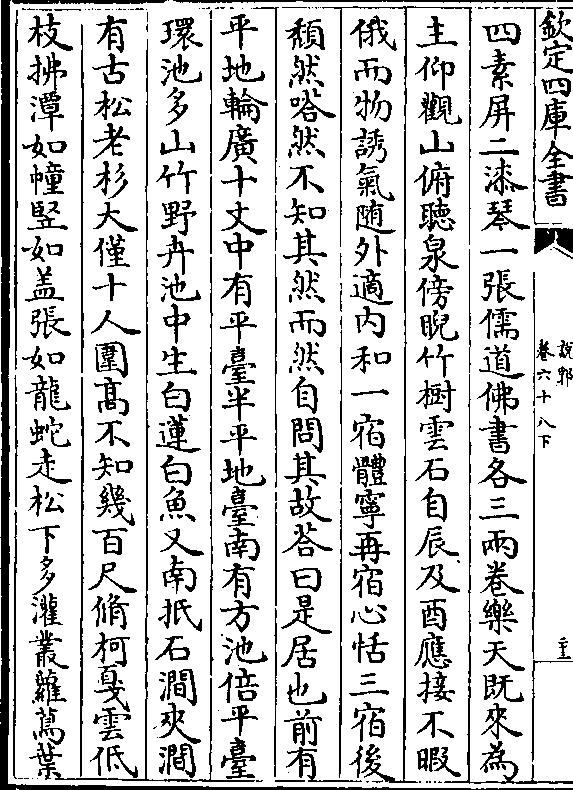 欽定四庫全書
說郛
卷六十八下
四素屏二漆琴一張儒道佛書各三兩卷樂天既來為
主仰觀山俯聽泉傍睨竹樹雲石自辰及酉應接不暇
俄而物誘氣随外適内和一宿體寧再宿心恬三宿後
頽然嗒然不知其然而然自問其故荅曰是居也前有
平地輪廣十丈中有平臺半平地臺南有方池倍平臺
環池多山竹野卉池中生白蓮白魚又南抵石澗夾澗
有古松老杉大僅十人圍高不知幾百尺脩柯戛雲低
枝拂潭如幢竪如盖張如龍蛇走松下多灌叢蘿蔦葉